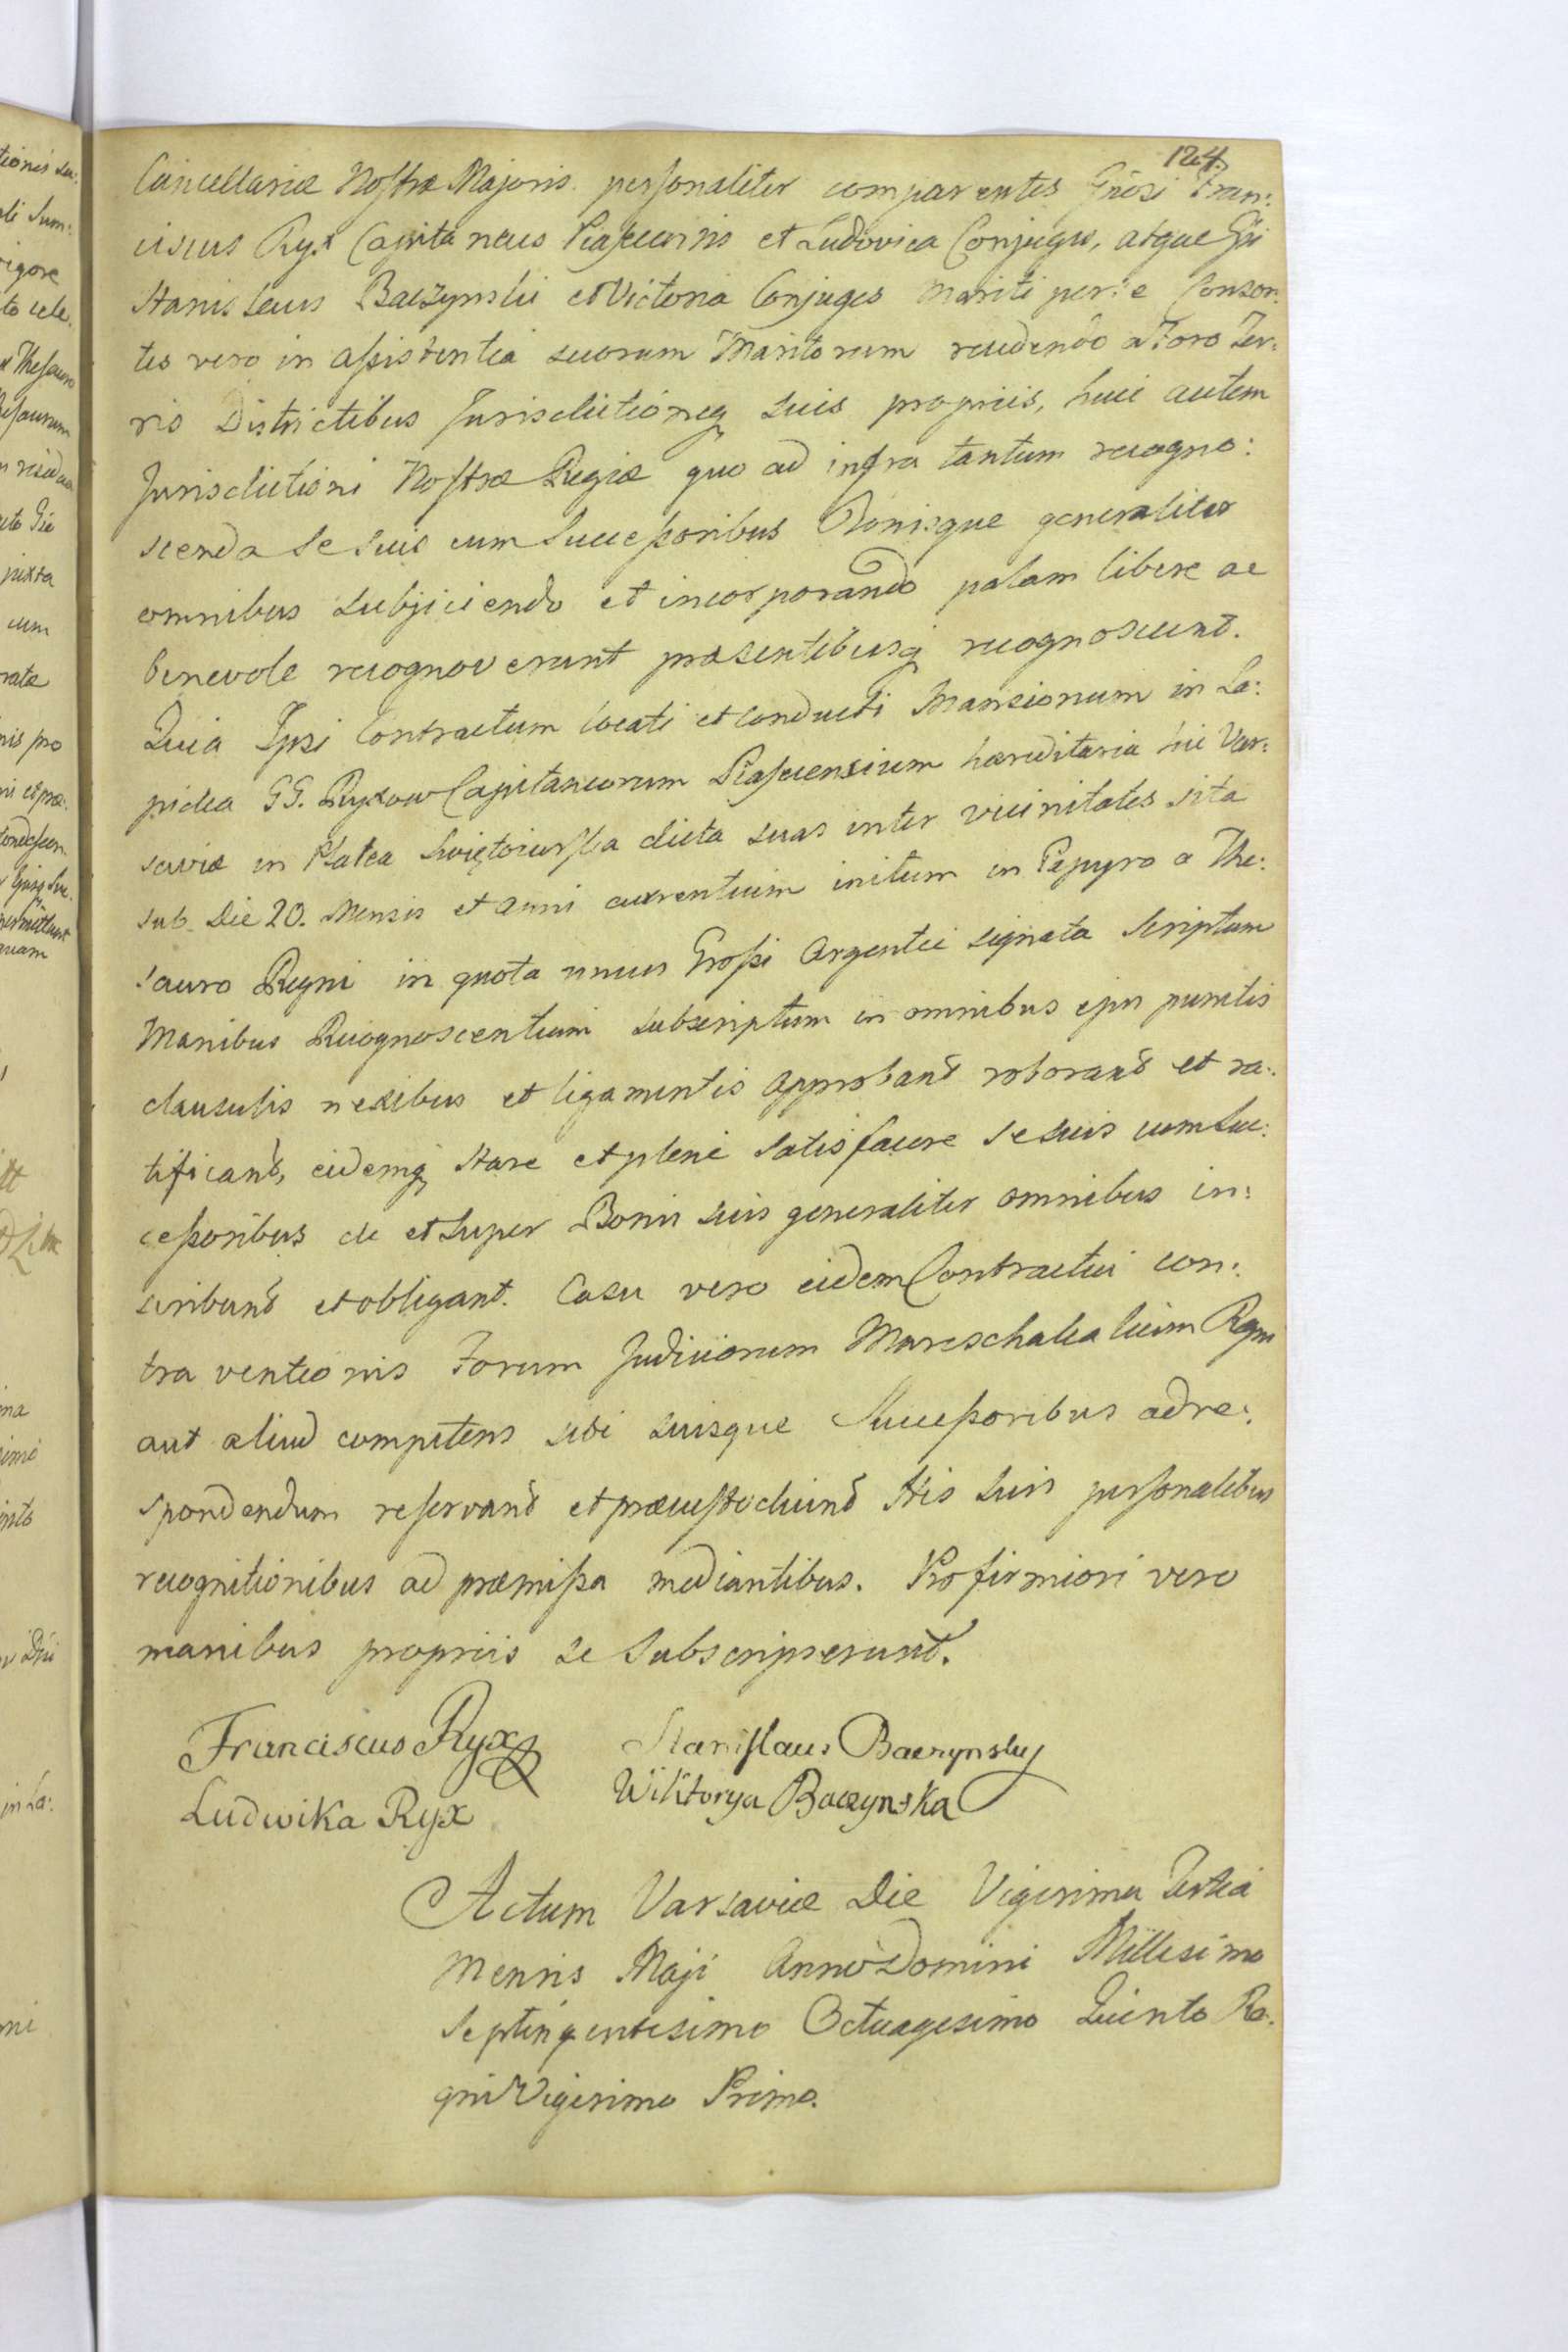 124.
Cancellariæ Nostræ Majoris personaliter comparentes Gnosi Fran:
ciscus Ryx Capitaneus Piasecensis et Ludovica Conjuges, atque Gni
Stanislaus Baczynski et Victoria Conjuges Mariti per se Conzor:
tes vero in assistentia suorum Maritorum recedendo a Foro Ter:
ris Districtibus Jurisdictioneq suis propriis, huic autem
Jurisdictioni Nostræ Regiæ quo ad infra tantum recogno:
scenda se suis cum Successoribus Bonisque generaliter
omnibus subjiciendo et incorporando palam libere ac
benevole recognoverunt præsentibusq recognoscunt.
Quia Ipsi Contractum locati et conducti Mansionum in La:
pidea GG. Ryxow Capitaneorum Piasecensium hæreditaria hic Var:
saviæ in Platea Swiętoierska dicta suas inter vicinitates sita
sub Die 20. Mensis et anni currentium initum in Papyro a The:
sauro Regni in quota unius Grossi Argentei signata Scriptum
Manibus Recognoscentium subscriptum in omnibus ejus punctis
clausulis nexibus et ligamentis approbant roborant et ra:
tificant, eidemq stare et plene satisfacere se suis cum Suc:
cessoribus de et super Bonis suis generaliter omnibus in:
scribunt et obligant. Casu vero eidem Contractui con:
traventionis Forum Judiciorum Mareschalcalium Regni
aut aliud competens sibi suisque Successoribus ad re:
spondendum reservant et præcustodiunt His suis personalibus
recognitionibus ad præmissa mediantibus. Pro firmiori vero
manibus propriis se subscripserunt.
Franciscus Ryx
Stanislaus Baczynsky
Ludwika Ryx
Wiktorya Baczynska
Actum Varsaviæ Die Vigesima Tertia
Mensis Maji Anno Domini Millesimo
Septingentesimo Octuagesimo Quinto Re:
gni Vigesimo Primo.